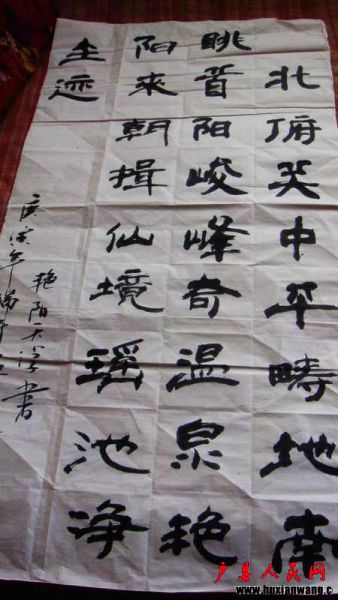 北俯关中平畴地南
眺首阳峻峰奇温泉艳
阳来朝揖仙境瑶池净
圣迹
庚寅年端午
艳阳天書
户县人民网
www.huxianwang.c